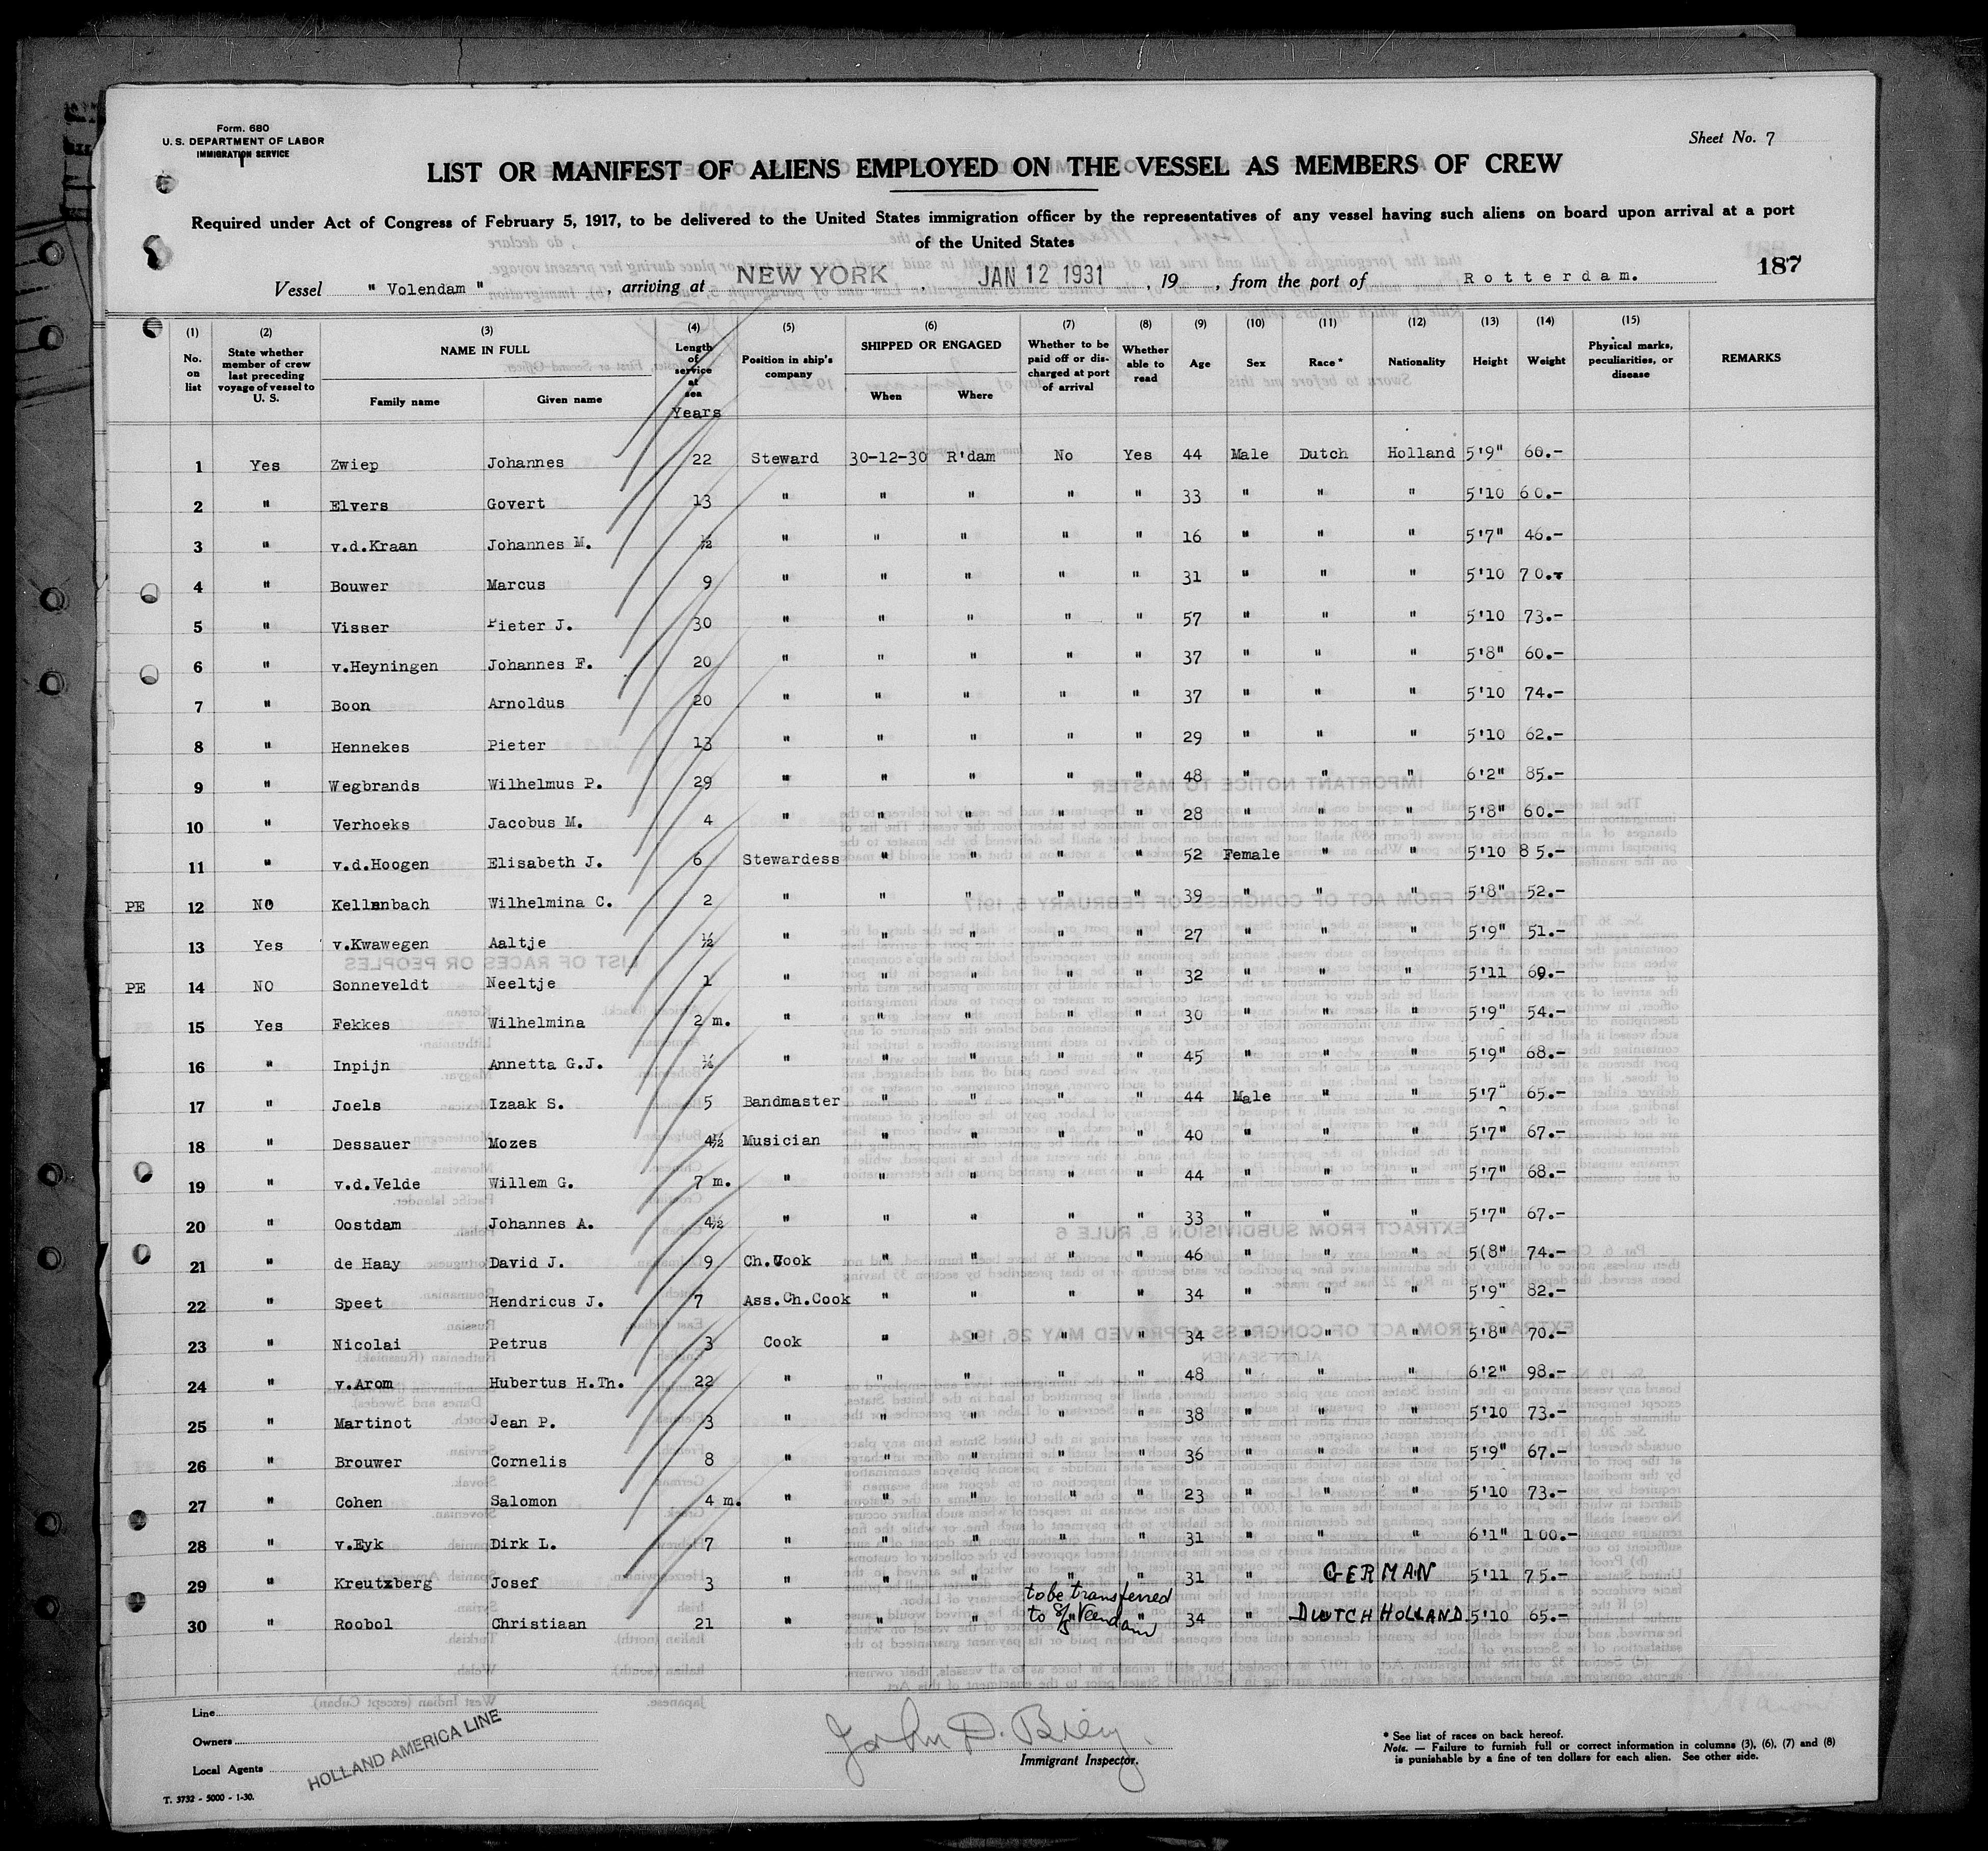 Form. 680
U. S. DEPARTMENT OF LABOR
IMMIGRATION SERVICE
Sheet No. 7
LIST OR MANIFEST OF ALIENS EMPLOYED ON THE VESSEL AS MEMBERS OF CREW
Required under Act of Congress of February 5, 1917, to be delivered to the United States immigration officer by the representatives of any vessel having such aliens on board upon arrival at a port
of the United States
187
Vessel " Volendam ", arriving at NEW YORK, JAN 12 1931, 19, from the port of Rotterdam.
(1) No. on list (2) State whether member of crew last preceding voyage of vessel to U. S. (3) NAME IN FULL Family name Given name (4) Length of service at sea Years (5) Position in ship's company (6) SHIPPED OR ENGAGED When Where (7) Whether to be paid off or discharged at port of arrival (8) Whether able to read (9) Age (10) Sex (11) Race* (12) Nationality (13) Height (14) Weight (15) Physical marks, peculiarities, or disease REMARKS
1 Yes Zwiep Johannes 22 Steward 30-12-30 R'dam No Yes 44 Male Dutch Holland 5'9" 60.-
2 " Elvers Govert 13 " " " " " 33 " " " 5'10 60.-
3 " v.d.Kraan Johannes M. ½ " " " " " 16 " " " 5'7" 46.-
4 " Bouwer Marcus 9 " " " " " 31 " " " 5'10 70.-
5 " Visser Pieter J. 30 " " " " " 57 " " " 5'10 73.-
6 " v.Heyningen Johannes F. 20 " " " " " 37 " " " 5'8" 60.-
7 " Boon Arnoldus 20 " " " " " 37 " " " 5'10 74.-
8 " Hennekes Pieter 13 " " " " " 29 " " " 5'10 62.-
9 " Wegbrands Wilhelmus P. 29 " " " " " 48 " " " 6'2" 85.-
10 " Verhoeks Jacobus M. 4 " " " " " 28 " " " 5'8" 60.-
11 " v.d.Hoogen Elisabeth J. 6 Stewardess " " " " 52 Female " " 5'10 85.-
PE 12 NO Kellenbach Wilhelmina C. 2 " " " " " 39 " " " 5'8" 52.-
13 Yes v.Kwawegen Aaltje ½ " " " " " 27 " " " 5'9" 51.-
PE 14 NO Sonneveldt Neeltje 1 " " " " " 32 " " " 5'11 69.-
15 Yes Fekkes Wilhelmina 2 m. " " " " " 30 " " " 5'9" 54.-
16 " Inpijn Annetta G.J. " " " " " 45 " " " 5'9" 68.-
17 " Joels Izaak S. 5 Bandmaster " " " " 44 Male " " 5'7" 65.-
18 " Dessauer Mozes 4½ Musician " " " " 40 " " " 5'7" 67.-
19 " v.d.Velde Willem G. 7 m. " " " " " 44 " " " 5'7" 68.-
20 " Oostdam Johannes A. 4½ " " " " " 33 " " " 5'7" 67.-
21 " de Haay David J. 9 Ch.Cook " " " " 46 " " " 5(8" 74.-
22 " Speet Hendricus J. 7 Ass.Ch.Cook " " " " 34 " " " 5'9" 82.-
23 " Nicolai Petrus 3 Cook " " " " 34 " " " 5'8" 70.-
24 " v.Arom Hubertus H.Th. 22 " " " " " 48 " " " 6'2" 98.-
25 " Martinot Jean P. 3 " " " " " 38 " " " 5'10 73.-
26 " Brouwer Cornelis 8 " " " " " 36 " " " 5'9" 67.-
27 " Cohen Salomon 4 m. " " " " " 23 " " " 5'10 73.-
28 " v.Eyk Dirk L. 7 " " " " " 31 " " " 6'1" 100.-
29 " Kreutzberg Josef 3 " " " " " 31 " GERMAN 5'11 75.-
to be transferred
30 " Roobol Christiaan 21 " " " to S/S Veendam " 34 " DUTCH HOLLAND 5'10 65.-
Line
Owners
Local Agents
HOLLAND AMERICA LINE
T. 3732 - 5000 - 1-30.
John D.
Immigrant Inspector.
* See list of races on back hereof.
Note. — Failure to furnish full or correct information in columns (3), (6), (7) and (8)
is punishable by a fine of ten dollars for each alien. See other side.